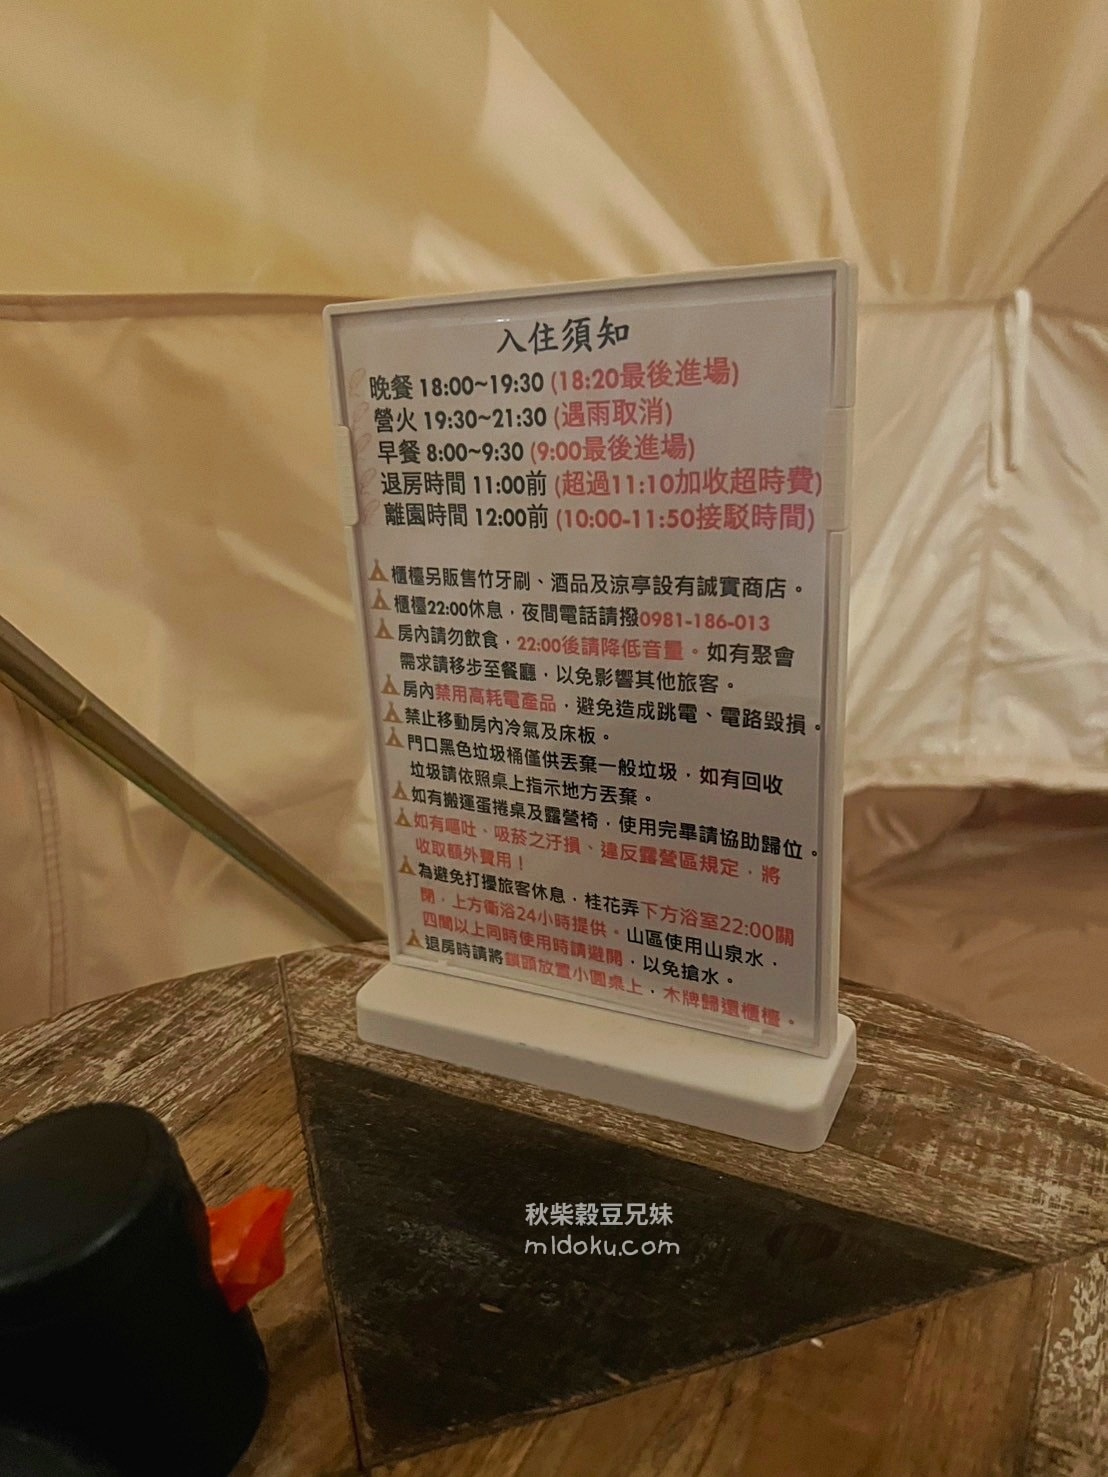 入住須知
晚餐 18:00~19:30 (18:20最後進場)
營火 19:30~21:30 (遇雨取消)
早餐 8:00~9:30 (9:00最後進場)
退房時間 11:00前 (超過11:10加收超時費)
離園時間 12:00前 (10:00-11:50接駁時間)
櫃檯另販售竹牙刷、酒品及涼亭設有誠實商店。
櫃檯22:00休息，夜間電話請撥0981-186-013
房內請勿飲食，22:00後請降低音量。如有聚會
需求請移步至餐廳，以免影響其他旅客。
房內禁用高耗電產品，避免造成跳電、電路毀損。
禁止移動房內冷氣及床板。
門口黑色垃圾桶僅供丟棄一般垃圾，如有回收
垃圾請依照桌上指示地方丟棄。
如有搬運蛋捲桌及露營椅，使用完畢請協助歸位。
如有嘔吐、吸菸之汙損、違反露營區規定，將
收取額外費用！
為避免打擾旅客休息，桂花弄下方浴室22:00關
閉，上方衛浴24小時提供。山區使用山泉水，
四間以上同時使用時請避開，以免搶水。
退房時請將鎖頭放置小圓桌上，木牌歸還櫃檯。
秋柴穀豆兄妹
mldoku.com